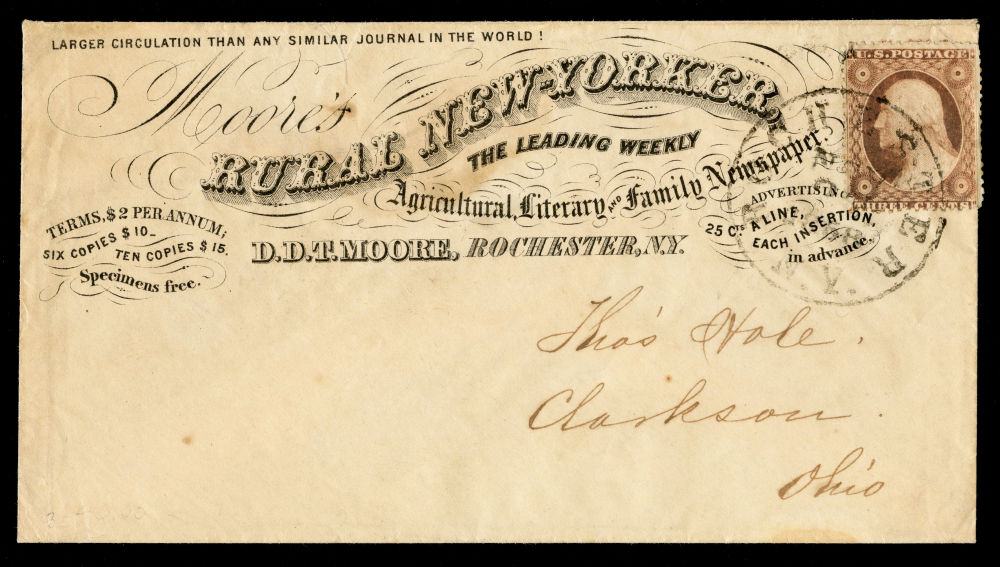 LARGER CIRCULATION THAN ANY SIMILAR JOURNAL IN THE WORLD!
Moore's
RURAL NEW-YORKER,
THE LEADING WEEKLY
Agricultural, Literary AND Family Newspaper.
D.D.T. MOORE, ROCHESTER, N.Y.
TERMS, $2 PER ANNUM;
SIX COPIES $10_
TEN COPIES $15.
Specimens free.
ADVERTISING
25 Cts A LINE,
EACH INSERTION,
in advance.
U.S. POSTAGE
THREE CENTS
Tho's Hole.
Clarkson.
Ohio